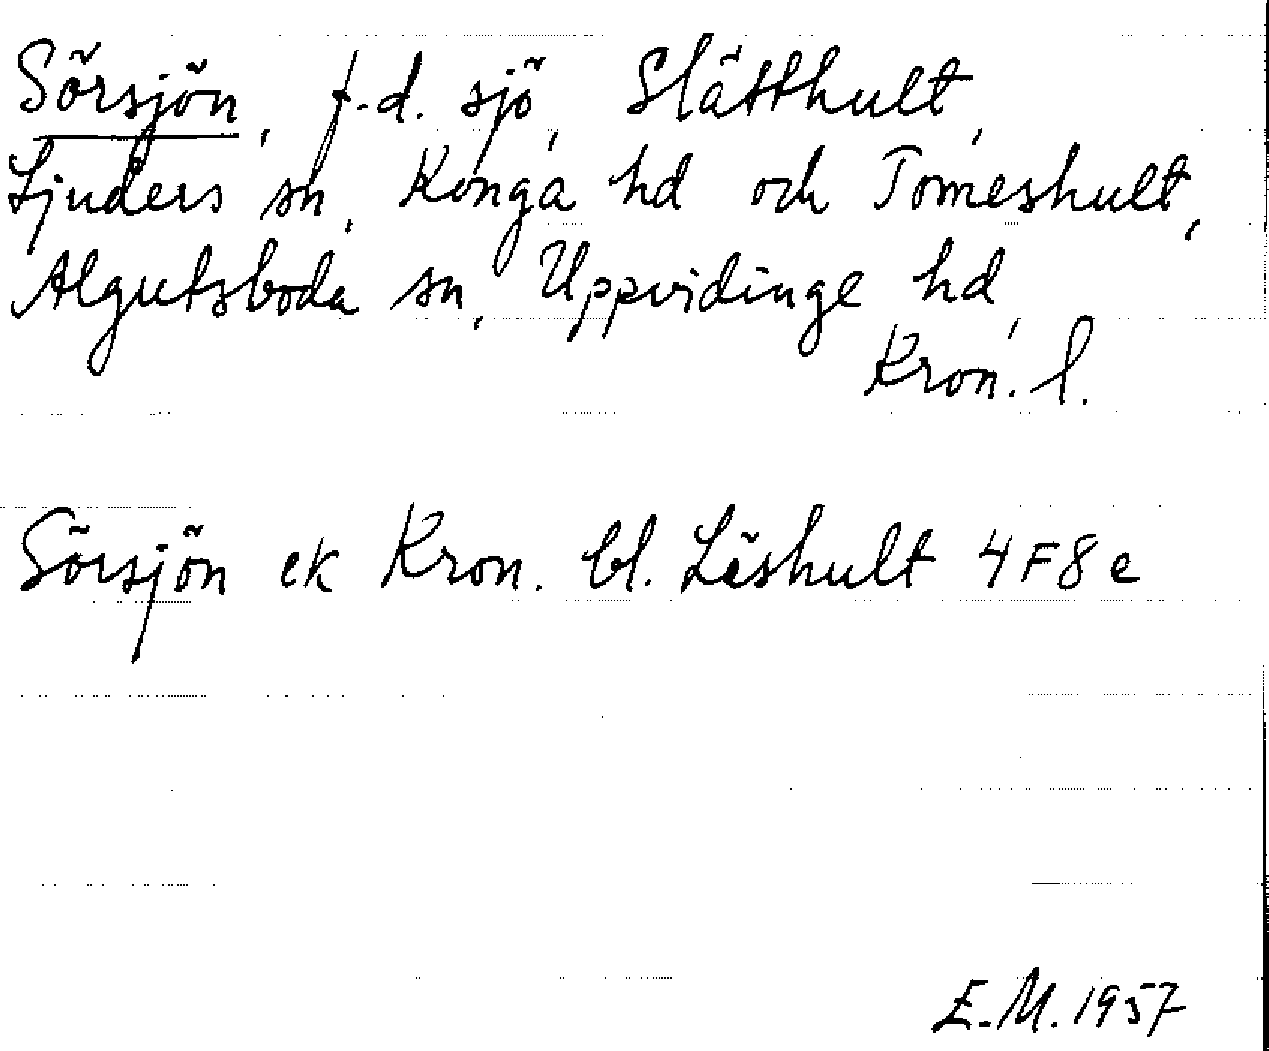 Sörsjön, f.d. sjö, Slätthult,
Ljuders sn, Konga hd och Tomeshult,
Algutsboda sn, Uppvidinge hd,
Kron. l.
Sörsjön ek Kron. bl. Läshult 4F8e
E.M. 1957